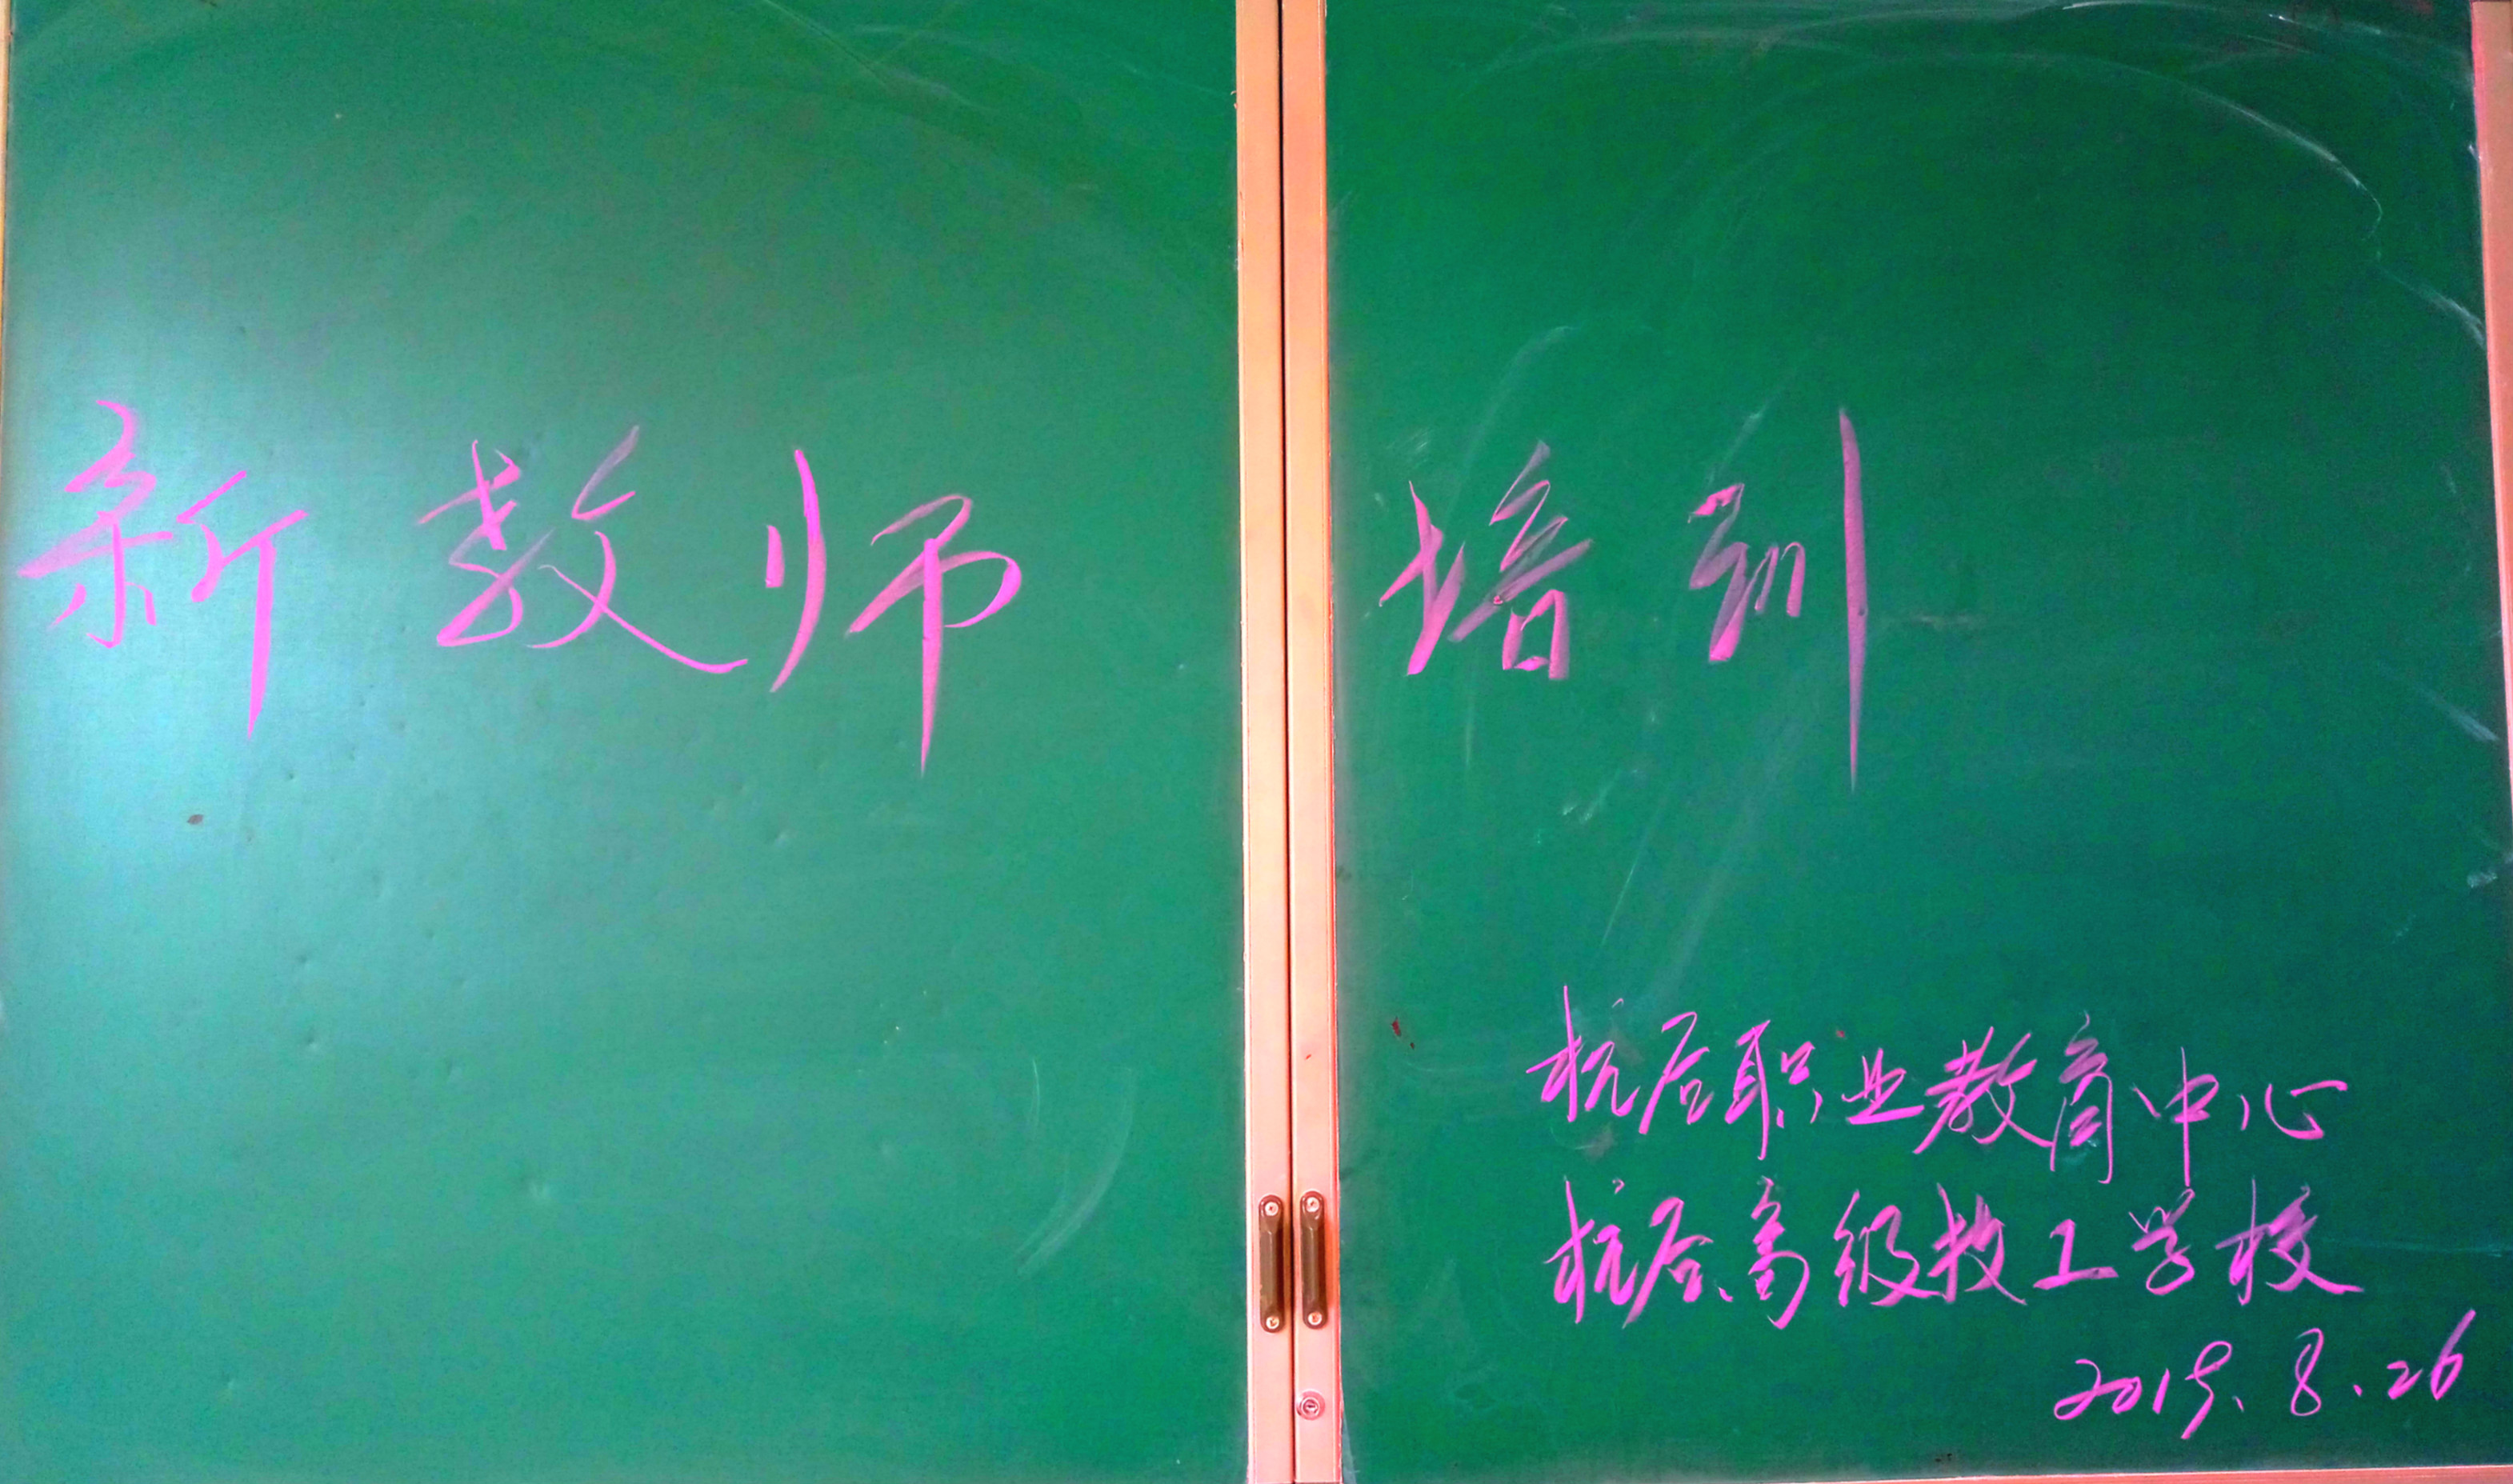 新教师培训
杭后职业教育中心
杭后高级技工学校
2019.8.26